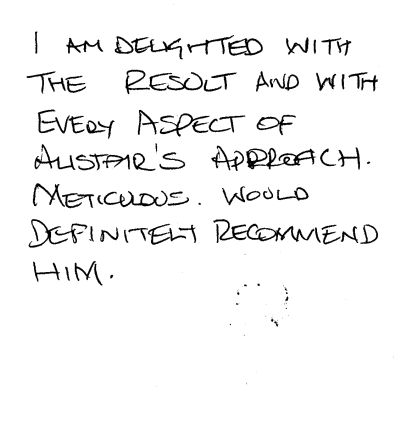 I AM DELIGHTED WITH
THE RESULT AND WITH
EVERY ASPECT OF
ALISTAIR'S APPROACH.
METICULOUS. WOULD
DEFINITELY RECOMMEND
HIM.